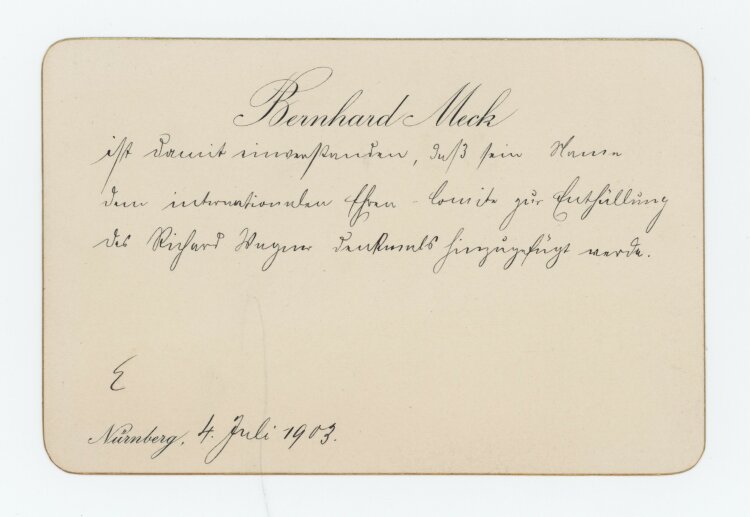 Bernhard Meck
ist damit einverstanden, daß sein Name
dem internationalen Ehren-Comite zur Enthüllung
des Richard Wagner Denkmals hinzugefügt werde.
E
Nürnberg, 4. Juli 1903.